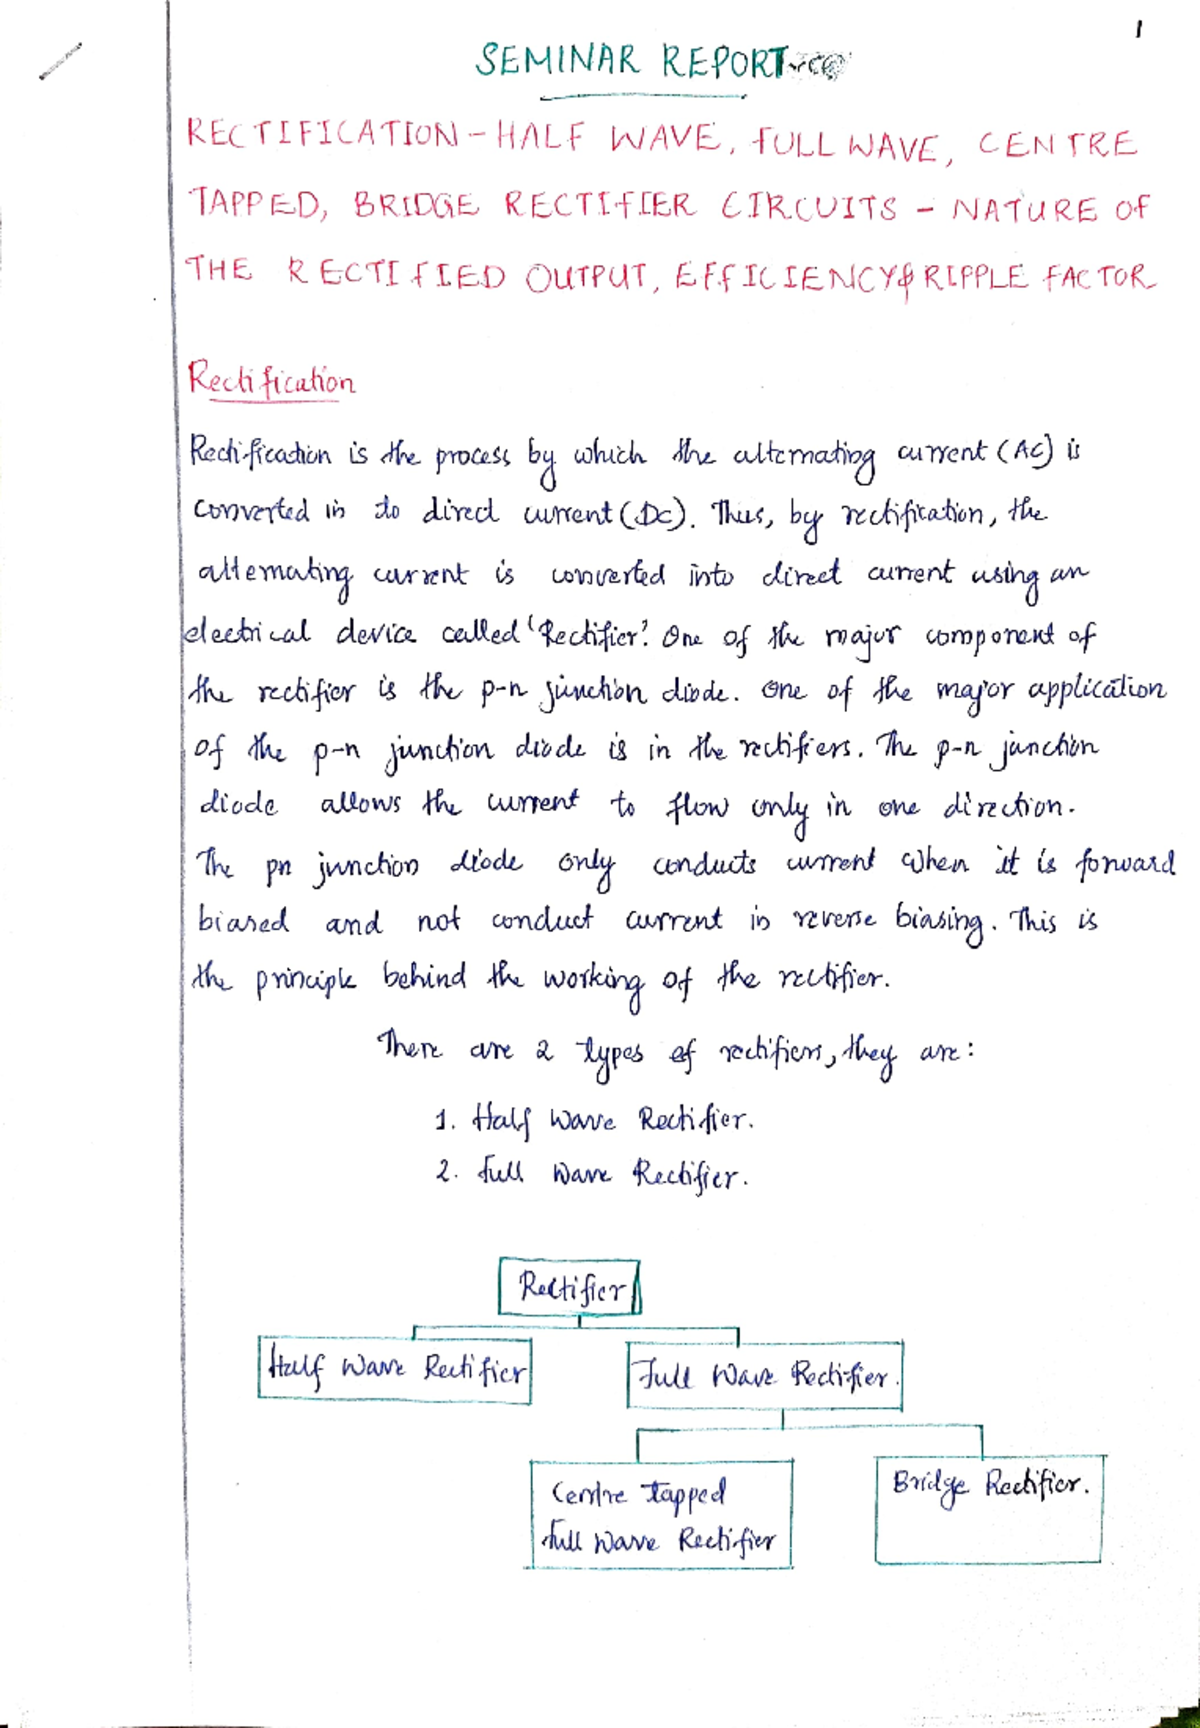 1
SEMINAR REPORT
RECTIFICATION - HALF WAVE, FULL WAVE, CENTRE
TAPPED, BRIDGE RECTIFIER CIRCUITS - NATURE OF
THE RECTIFIED OUTPUT, EFFICIENCY & RIPPLE FACTOR
Rectification
Rectification is the process by which the alternating current (AC) is
converted in to direct current (DC). Thus, by rectification, the
alternating current is converted into direct current using an
electrical device called 'Rectifier'. One of the major component of
the rectifier is the p-n junction diode. One of the major application
of the p-n junction diode is in the rectifiers. The p-n junction
diode allows the current to flow only in one direction.
The pn junction diode only conducts current when it is forward
biased and not conduct current in reverse biasing. This is
the principle behind the working of the rectifier.
There are 2 types of rectifiers, they are:
1. Half Wave Rectifier.
2. Full Wave Rectifier.
Rectifier
Half Wave Rectifier
Full Wave Rectifier.
Centre tapped
full Wave Rectifier
Bridge Rectifier.